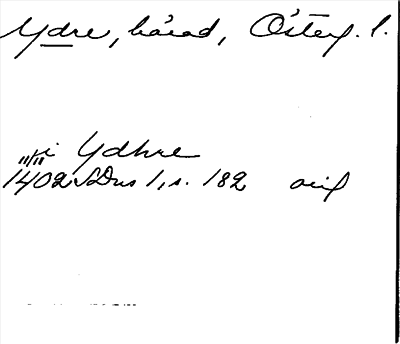 Ydre, härad, Österg. l.
11/11 i Ydhre
1402 SDns 1, s. 182 orig